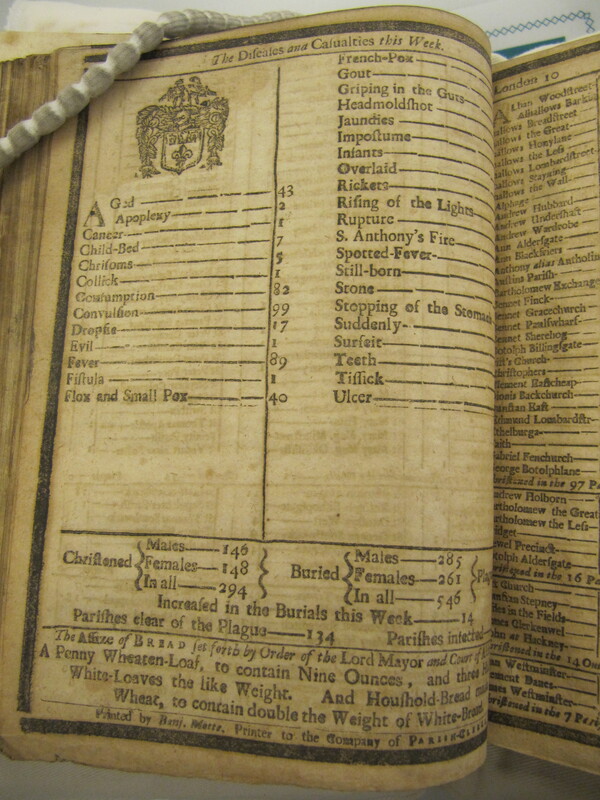 The Diseases and Casualties this Week.
AGed 43
Apoplexy 2
Cancer 1
Child-Bed 7
Chrisoms 5
Collick 1
Consumption 82
Convulsion 99
Dropsie 17
Evil 1
Fever 89
Fistula 1
Flox and Small Pox 40
French-Pox
Gout
Griping in the Guts
Headmoldshot
Jaundies
Impostume
Infants
Overlaid
Rickets
Rising of the Lights
Rupture
S. Anthony's Fire
Spotted-Fever
Still-born
Stone
Stopping of the Stomach
Suddenly
Surfeit
Teeth
Tissick
Ulcer
Christened { Males 146
Females 148
In all 294 }
Buried { Males 285
Females 261
In all 546 }
Increased in the Burials this Week 14
Parishes clear of the Plague 134 Parishes infected
The Assize of BREAD set forth by Order of the Lord Mayor and Court of
A Penny Wheaten-Loaf, to contain Nine Ounces, and three
White-Loaves the like Weight. And Houshold-Bread
Wheat, to contain double the Weight of White-Bread
Printed by Benj. Motte, Printer to the Company of PARISH-
London 10
ALban Woodstreet
Alhallows Barkin
allows Breadstreet
allows the Great
allows Honylane
allows the Less
allows Lombardstreet
allows Stayning
allows the Wall
Alphage
Andrew Hubbard
Andrew Undershaft
Andrew Wardrobe
Ann Aldersgate
Ann Blackfriers
Anthony alias Antholin
Austins Parish
Bartholomew Exchange
Bennet Finck
Bennet Gracechurch
Bennet Paulswharf
Bennet Sherehog
Botolph Billingsgate
Christ's Church
Christophers
Clement Eastcheap
Dionis Backchurch
Dunstan East
Edmund Lombardstr
Ethelburga
Faith
Gabriel Fenchurch
George Botolphlane
Christened in the 97
Andrew Holborn
Bartholomew the Great
Bartholomew the Less
Bridget
Precinct
Botolph Aldersgate
Christened in the 16
Church
Stepney
Giles in the Fields
James Clerkenwel
John at Hackney
Christened in the 14
Westminster
Clement Danes
James Westminster
Christened in the 7